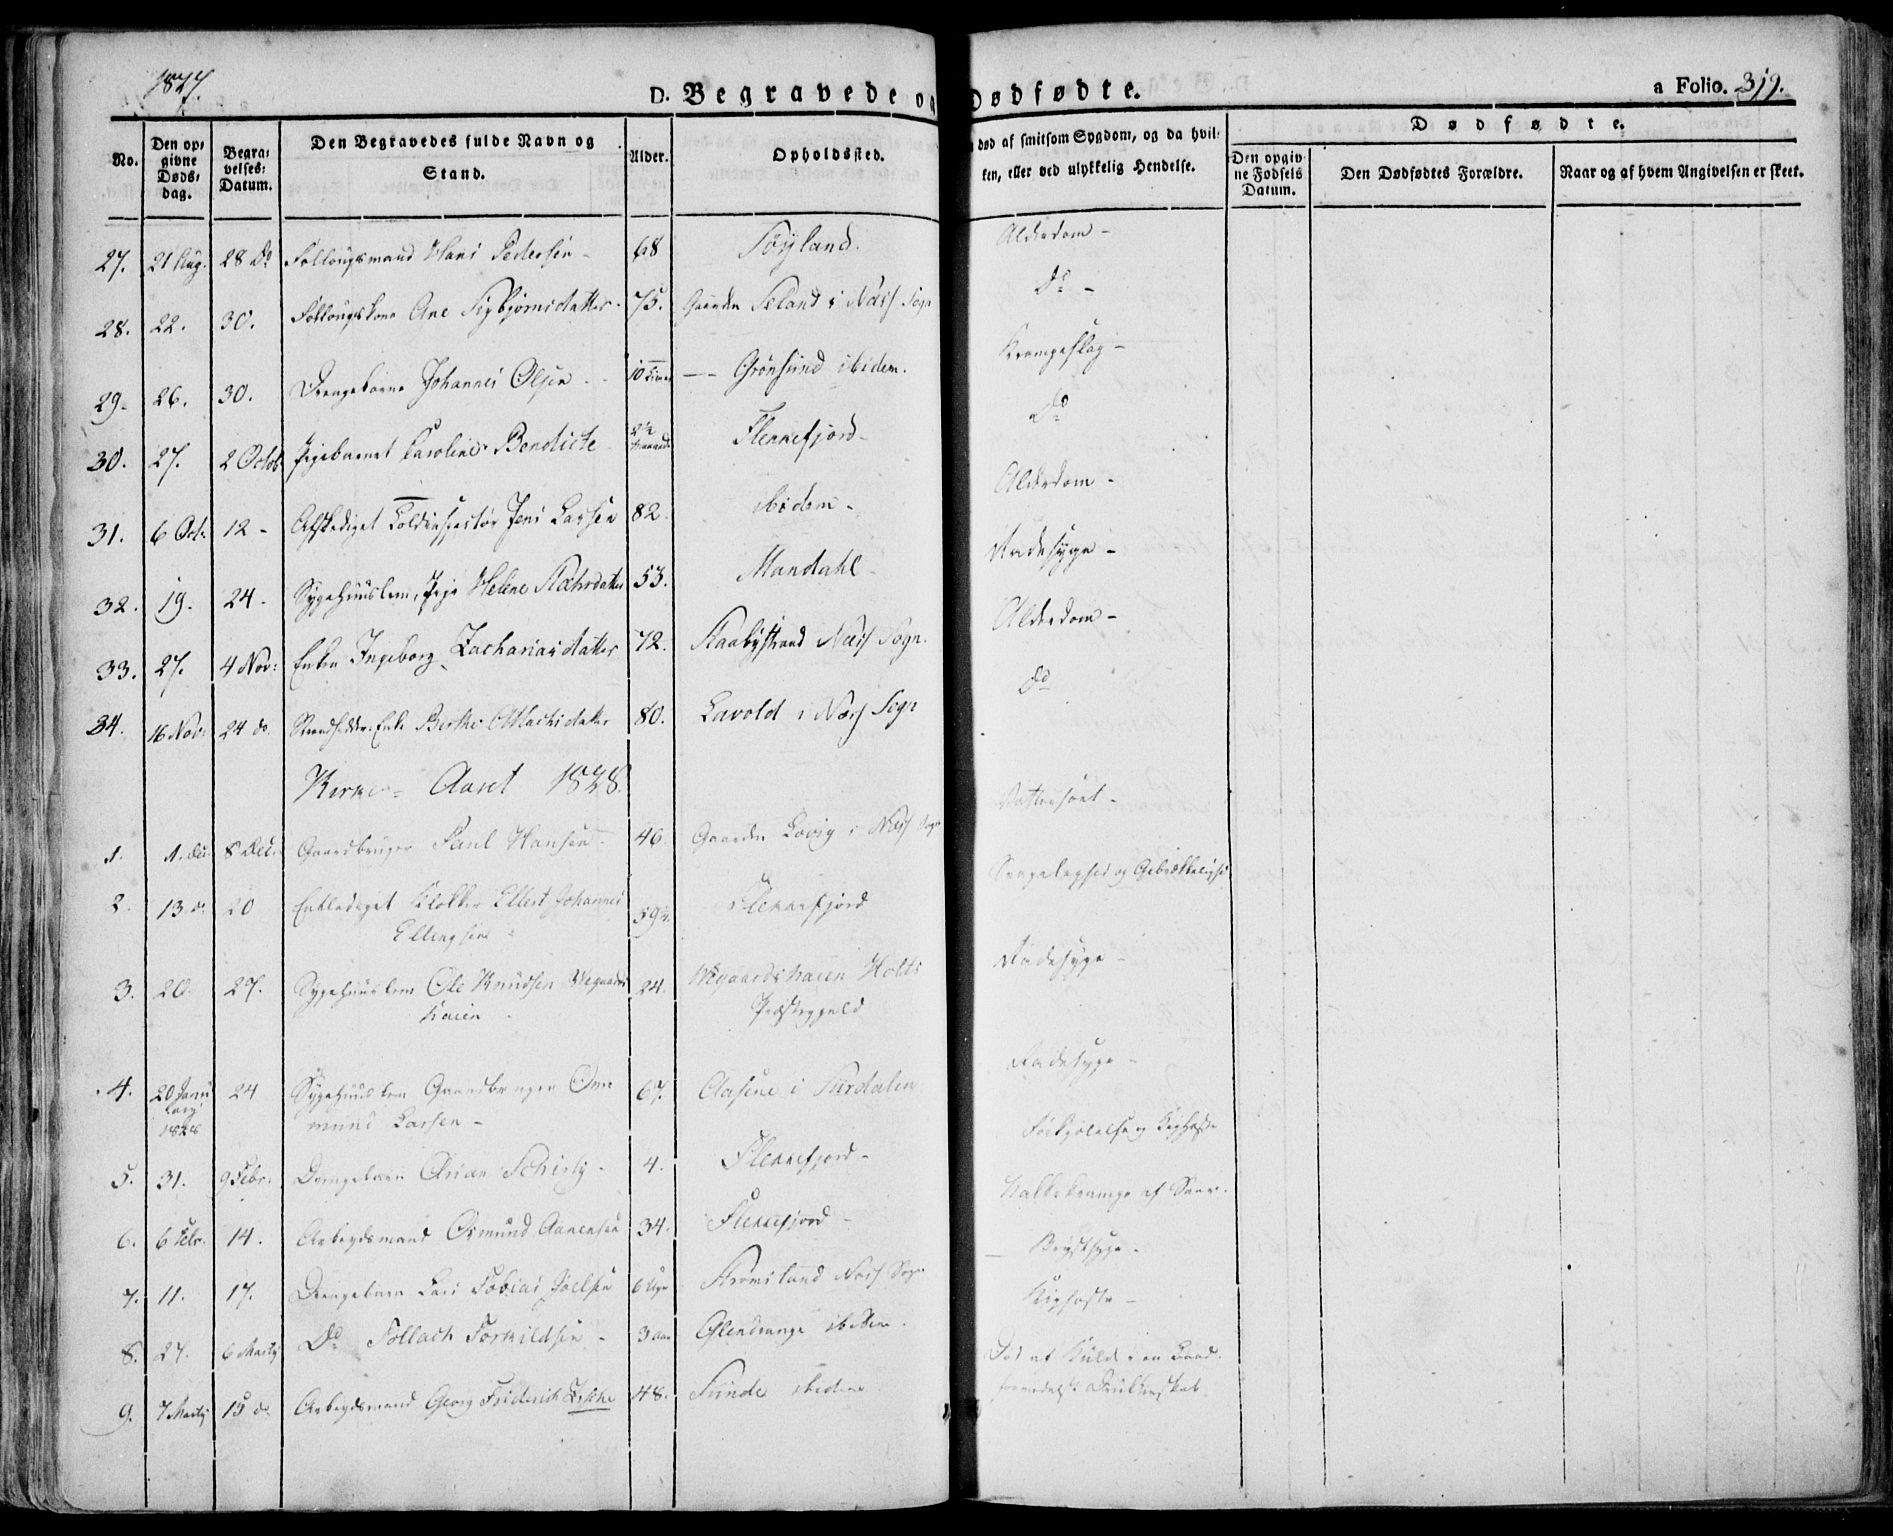 1827.
D. Begravede og Dødfødte.
a Folio. 319.
No.
Den op-
givne
Døds-
dag.
Begra-
velses-
Datum.
Den Begravedes fulde Navn og
Stand.
Alder.
Opholdssted.
død af smitsom Sygdom, og da hvil-
ken, eller ved ulykkelig Hendelse.
Dødfødte.
Den opgiv-
ne Fødsels
Datum.
Den Dødfødtes Forældre.
Naar og af hvem Angivelsen er skeet.
27. 21 Aug. 28 do Follougsmand Hans Pedersen - 68 Alderdom -
28. 22. 30. Follougskone Ane Sigbjørnsdatter - 75. Gaarden Seland i Næss Sogn Do -
29. 26. 30. Drengebarn Johannes Olsen 10 Grønsund ibidem. Krampeslag -
30. 27. 2 Octob. Pigebarnet Caroline Bendicte Flekkefjord - Do
31. 6 Oct. 12 - Afskediget Toldinspectør Jens Larsen 82. ibidem - Alderdom -
32. 19. 24 - Sygehuuslem, Pige Helene 53. Mandahl - Radesyge -
33. 27. 4 Nov: Enken Ingeborg Zachariasdatter 72. Næss Sogn. Alderdom -
34. 16 Nov: 24 do. Enke Berthe 80. Lavold i Næss Sogn do
Kirke-Aaret 1828.
1. 1. Dec. 8 Dec. Gaardbruger Paul Hansen 46 Gaarden Lovig i Næss Sogn
2. 13. do 20 Entlediget Klokker Ellert Johannes
Ellingsen 59 Flekkefjord Svagelighed og Gebrækkelighed
3. 20. 27. Sygehuuslem Ole Knudsen Wegaards
haien 24. Wegaardshaien Holts
Præstegjeld Radesyge -
4. 20 Janu
uarj
1828 24 Sygehuuslem Gaardbruger Om
mund Larsen - 67. Aasene i Sirdalen Radesyge -
5. 31. 9 Febr. Drengebarn 4. Flekkefjord - Forkjølelse og Kighoste
6. 6 Febr. 14. Arbeydsmand Osmund Aanensen 34. Flekkefjord -
7. 11. 17. Drengebarn Lars Tobias Joelsen 6 Uger Næss Sogn Brystsyge -
8. 27. 6 Martj Do Tollach Torkildsen - 3 Aar ibidem. Kighoste -
9. 7 Martj 15 do Arbeydsmand Georg Friderich 48. ibidem Død af Kulde i en Baad
formedelst Drukkenskab.